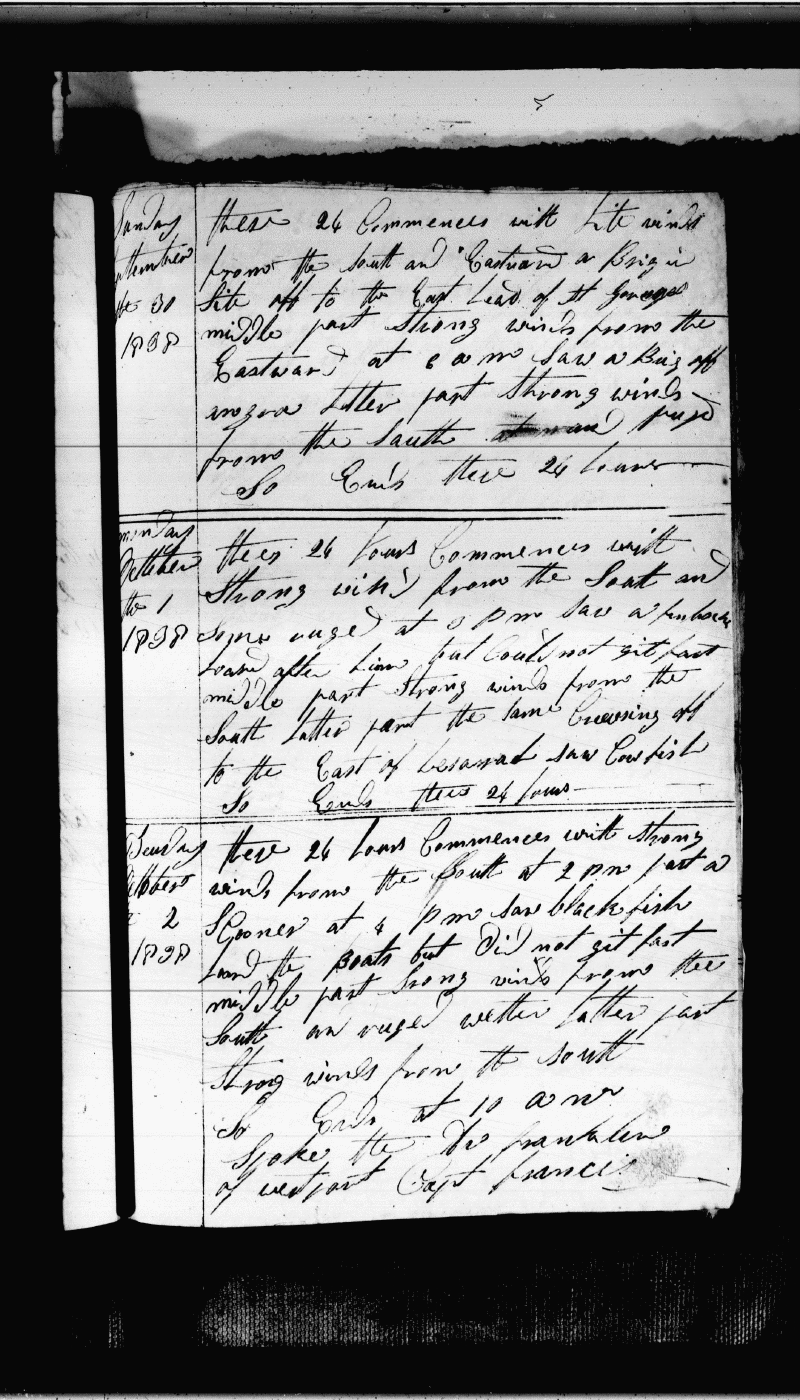 Sunday
the 30
1838
these 24 Commences with Lite winds
from the south and Eastward a Brig in
Site off to the East Head of St Georges
middle part Strong winds from the
Eastward at 6 a m Saw a Brig off
latter part Strong winds
from the South and ruged
So Ends these 24 houars
monday
October
the 1
1838
thees 24 hours Commences with
Strong wind from the South and
ruged at 5 p m Saw a
Loard after him but Could not git fast
middle part Strong winds from the
South Latter part the same Cruesing off
to the East of saw Cowfish
So Ends thees 24 hours
October
2
1838
these 24 hours Commences with Strong
winds from the South at 2 pm past a
SGooner at 4 p m saw black fish
Loard the Boats but Did not git fast
middle part Srong winds from the
South an ruged wether latter part
Strong winds from the south
So Ends at 10 a m
Spoke the Dr franklin
of westport Capt francis